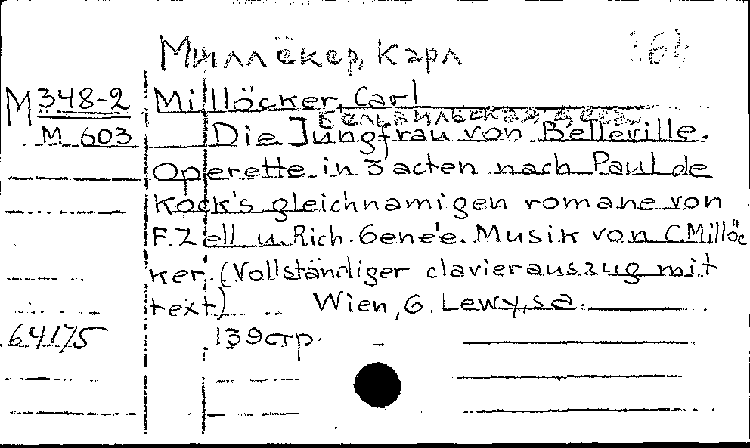 Миллёкер, Карл 164
М 348-2 Millöcker, Carl
М 603 Die Jungfrau von Belleville.
Operette in 3 acten nach Paul de
Kock's gleichnamigen romane von
F. Zell u. Rich. Gene'e. Musik von C. Millöc
ker. (Vollständiger clavierauszug mit
text) Wien, G. Lewy, s.a.
64175 139 стр.